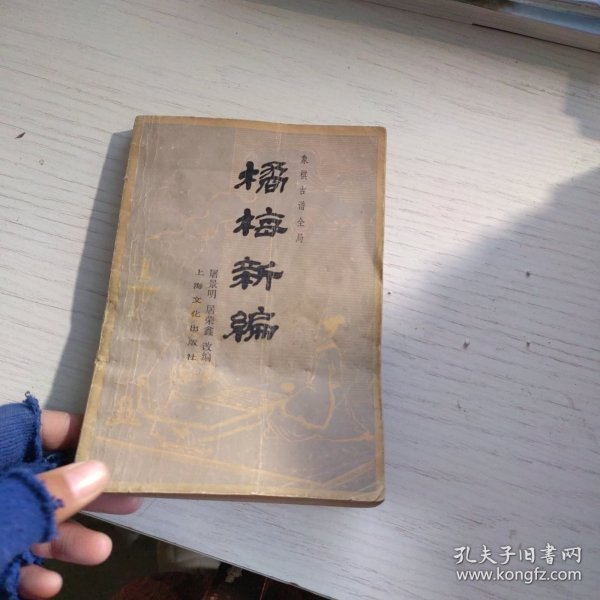 象棋古谱全局
橘梅新编
屠景明 居荣鑫 改编
上海文化出版社
孔夫子旧书网
www.kongfz.com